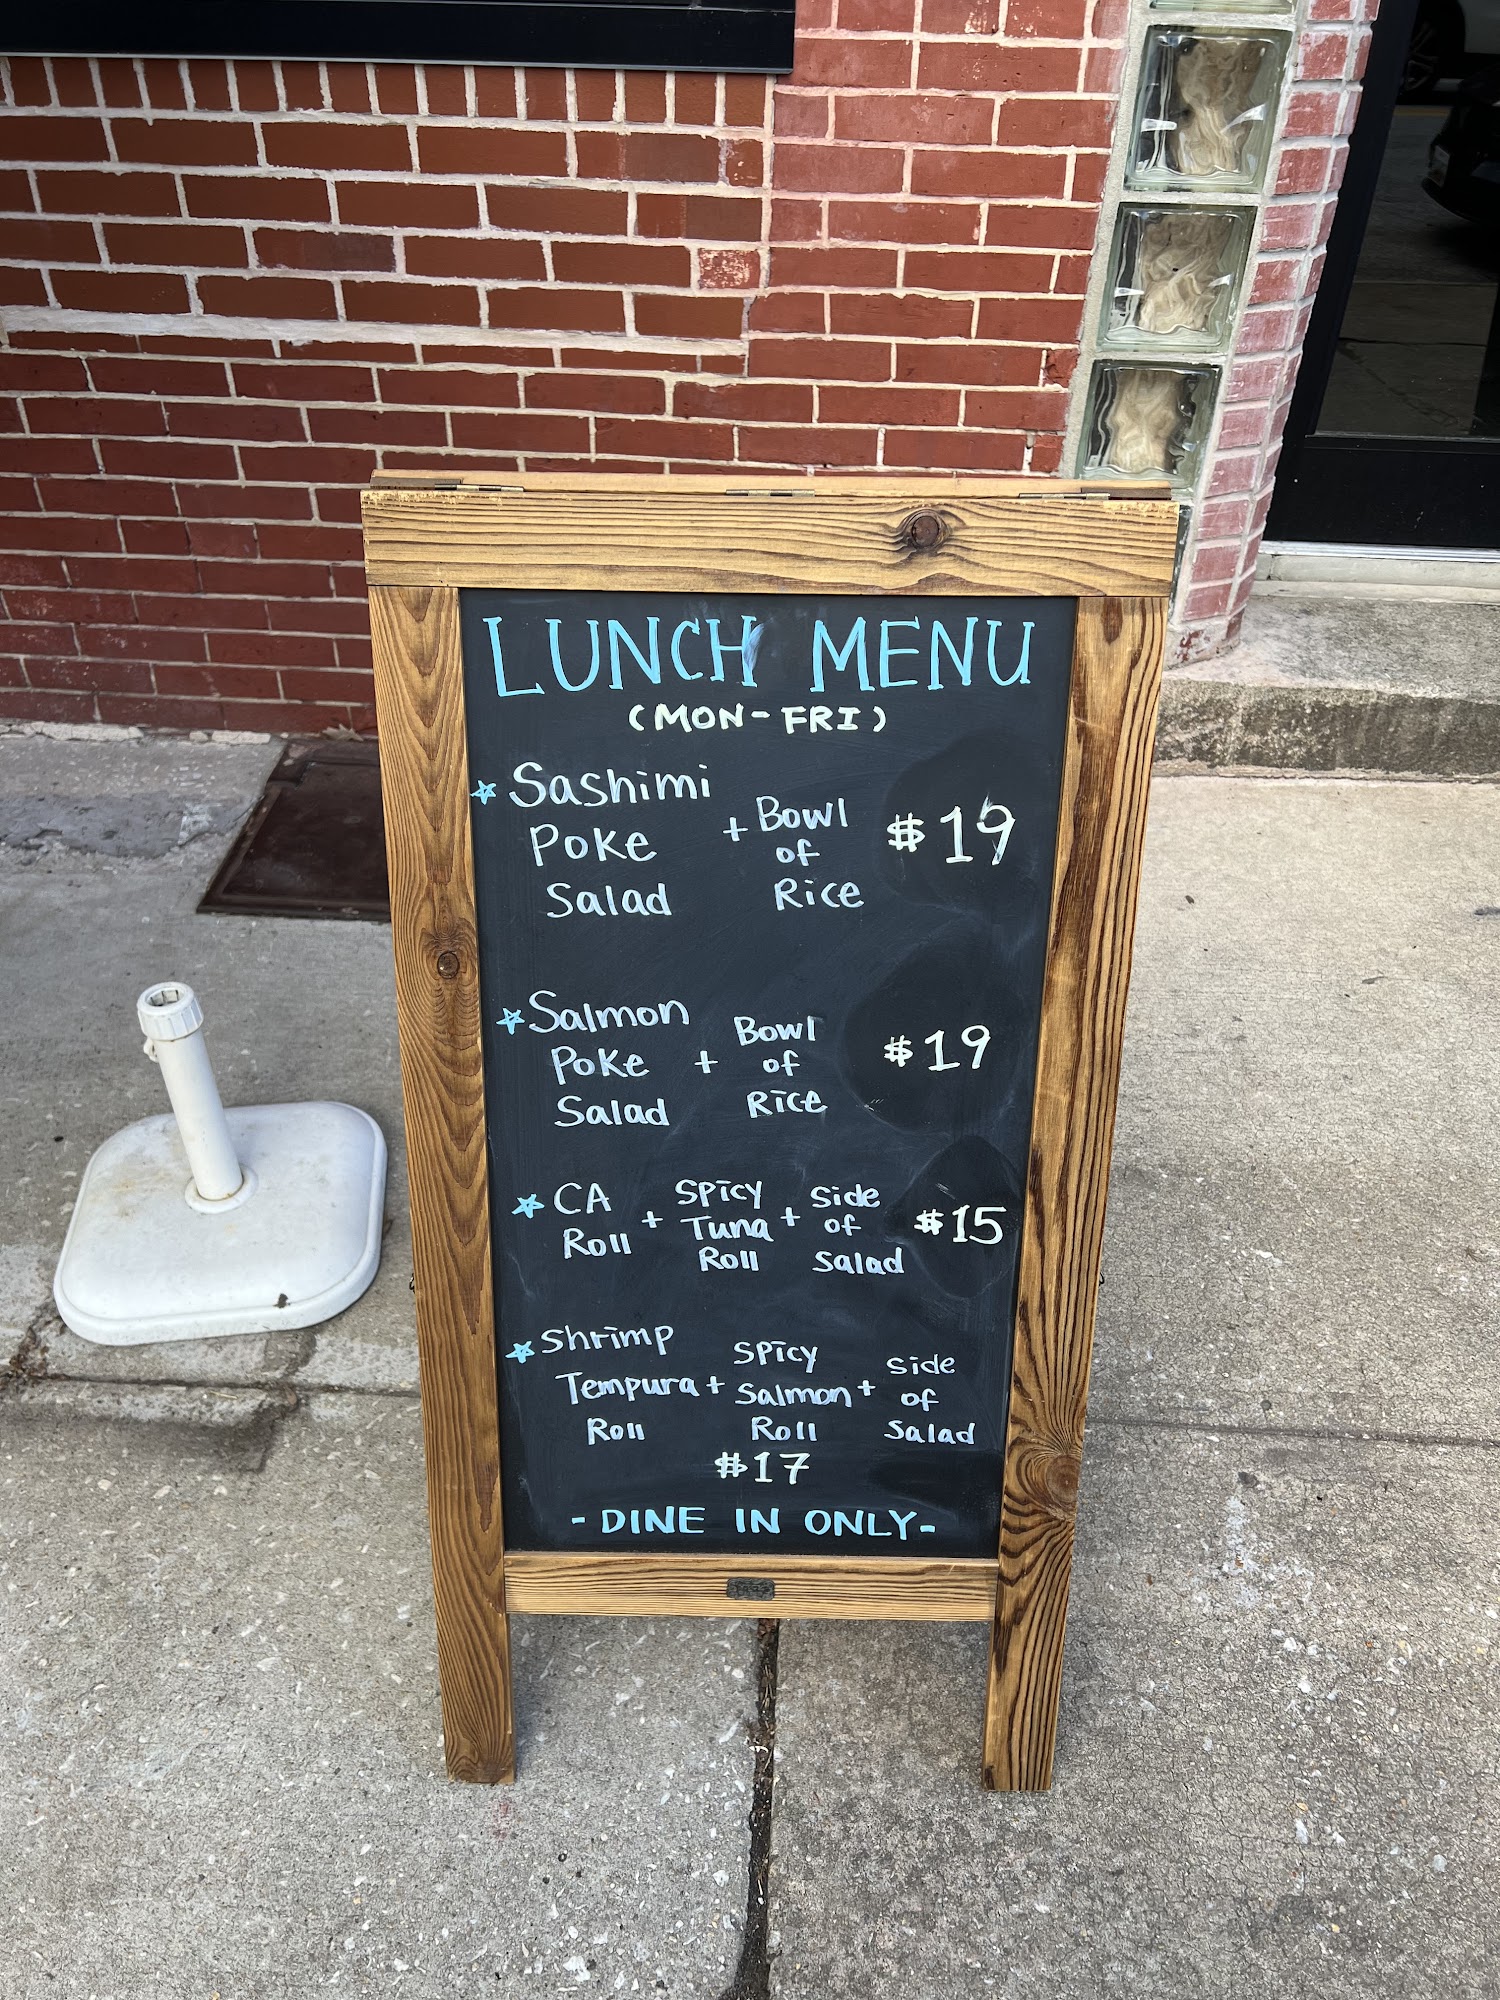 LUNCH MENU
(MON-FRI)
Sashimi
Poke
Salad
+ Bowl
of
Rice
$19
Salmon
Poke
Salad
+
Bowl
of
Rice
$19
CA
Roll
+
Spicy
Tuna
Roll
+
Side
of
Salad
$15
Shrimp
Tempura
Roll
+
Spicy
Salmon
Roll
+
Side
of
Salad
$17
- DINE IN ONLY -